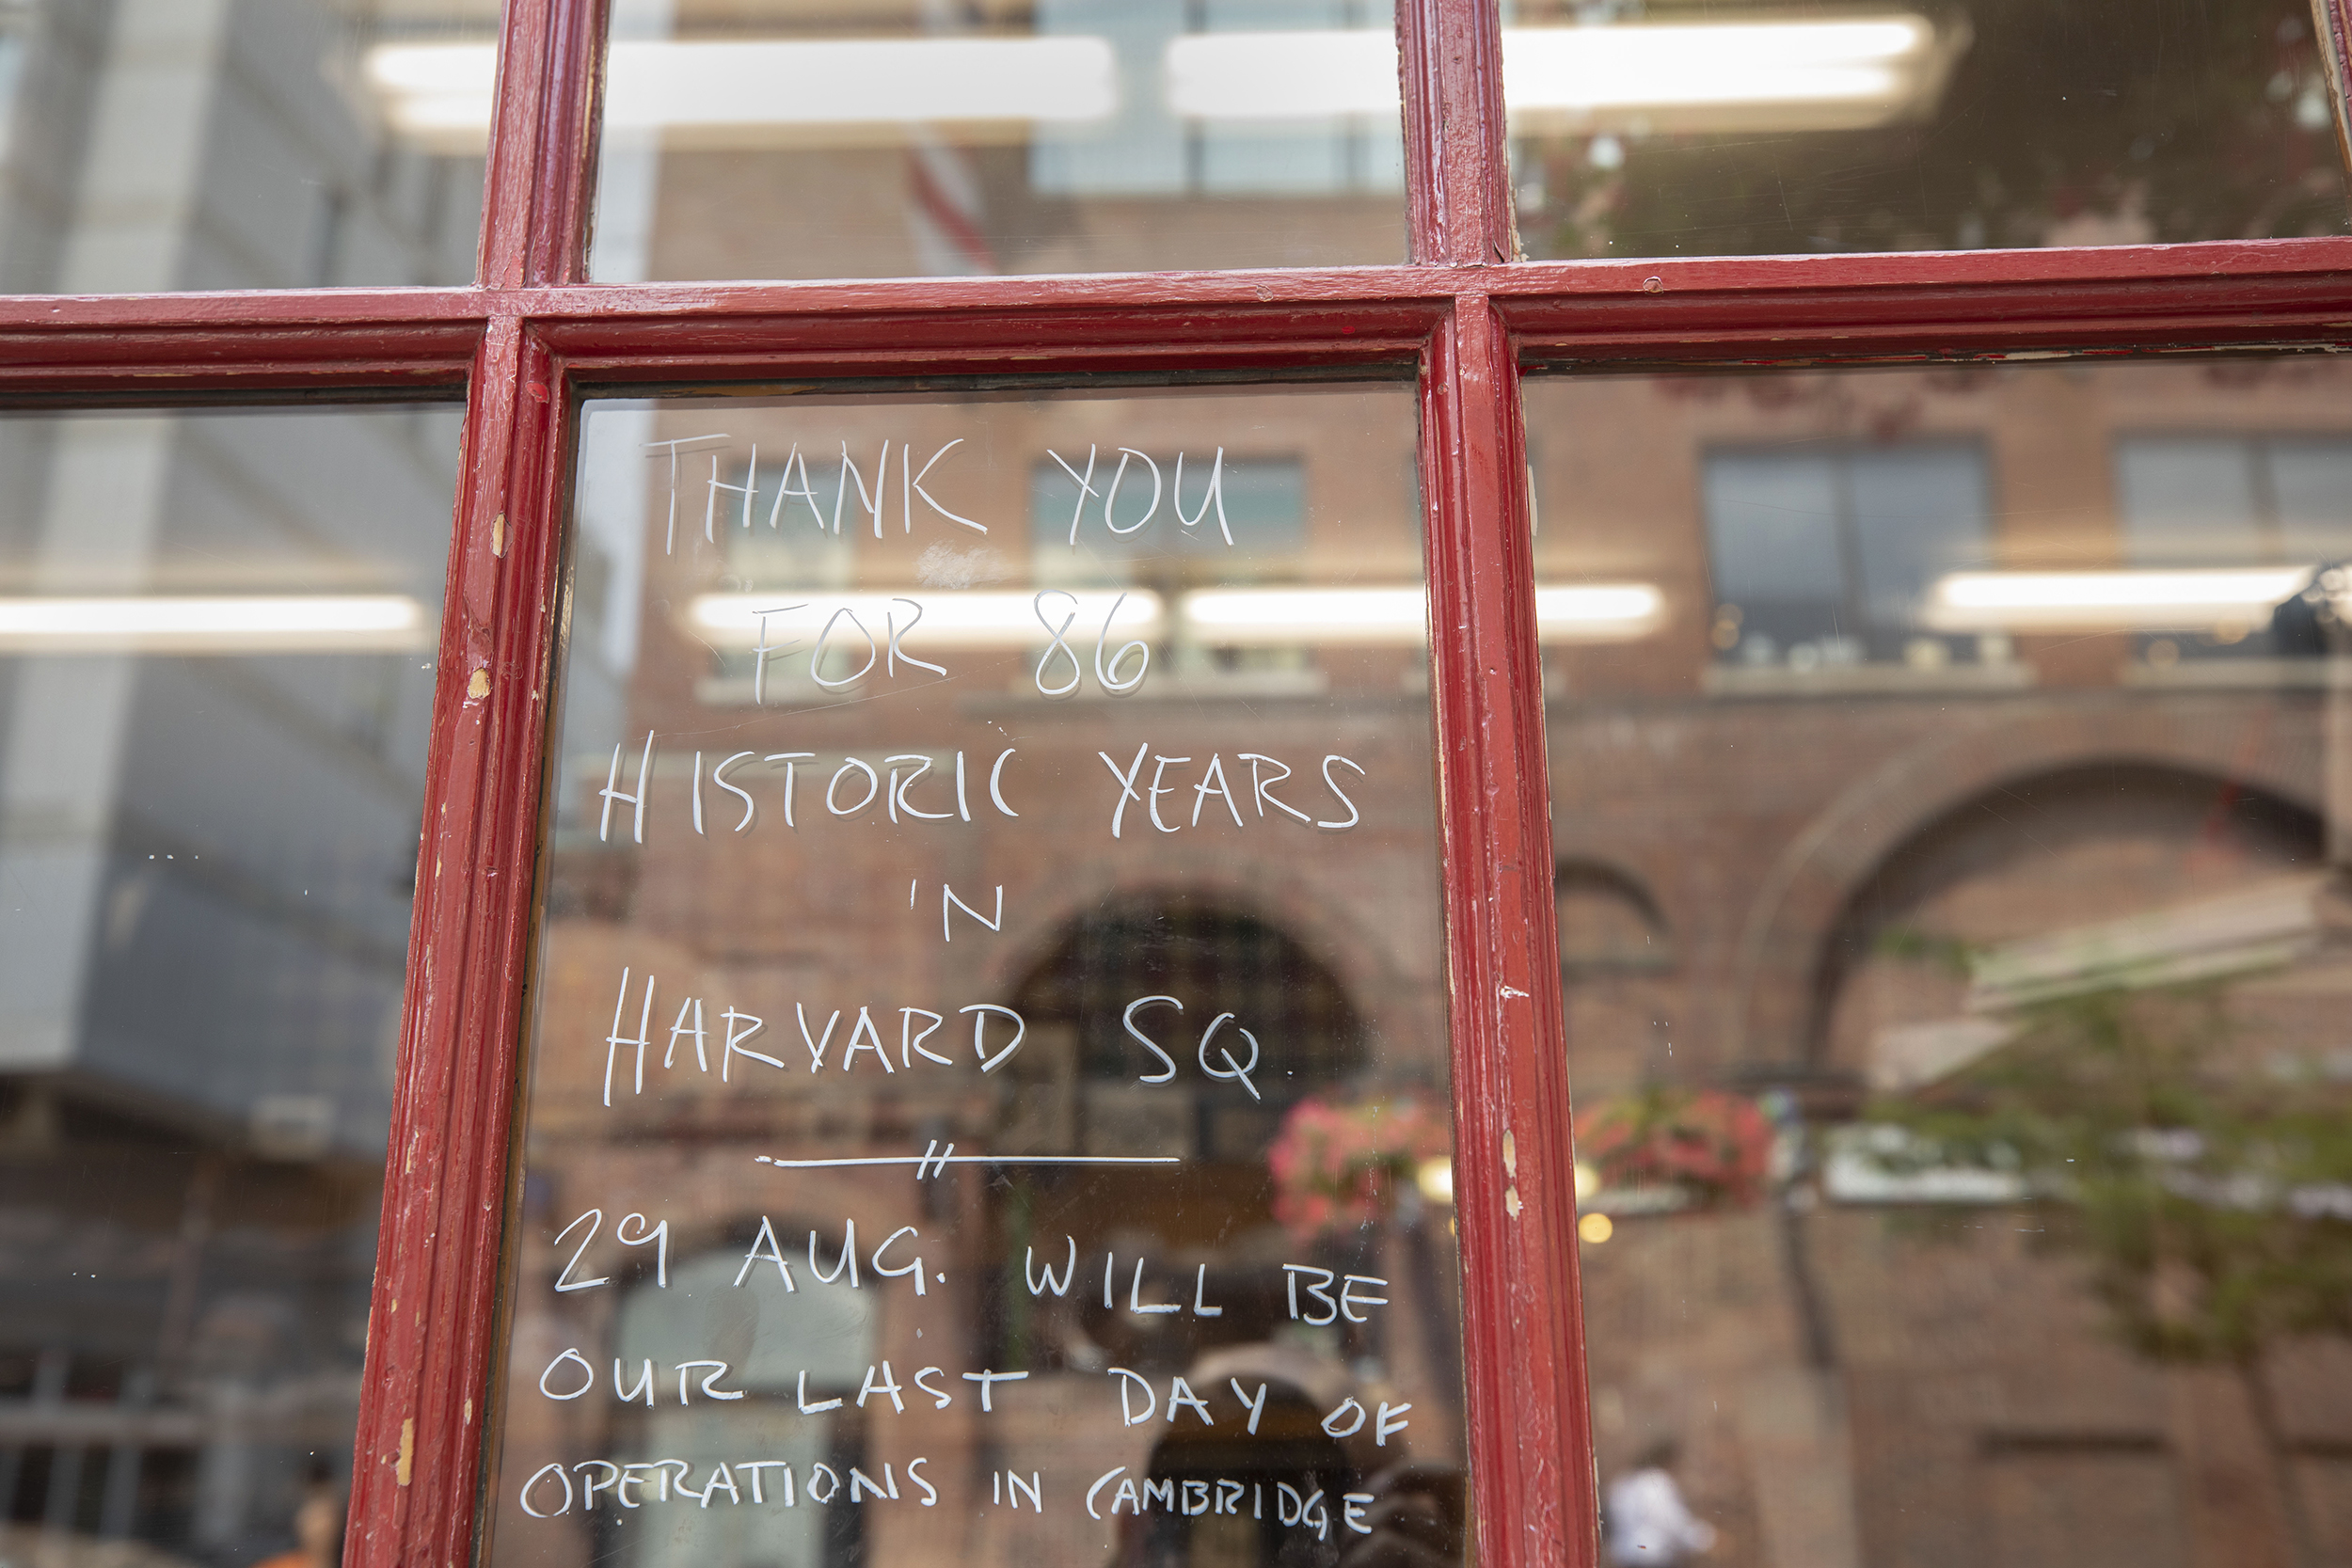 THANK YOU
FOR 86
HISTORIC YEARS
'N
HARVARD SQ.
29 AUG. WILL BE
OUR LAST DAY OF
OPERATIONS IN CAMBRIDGE